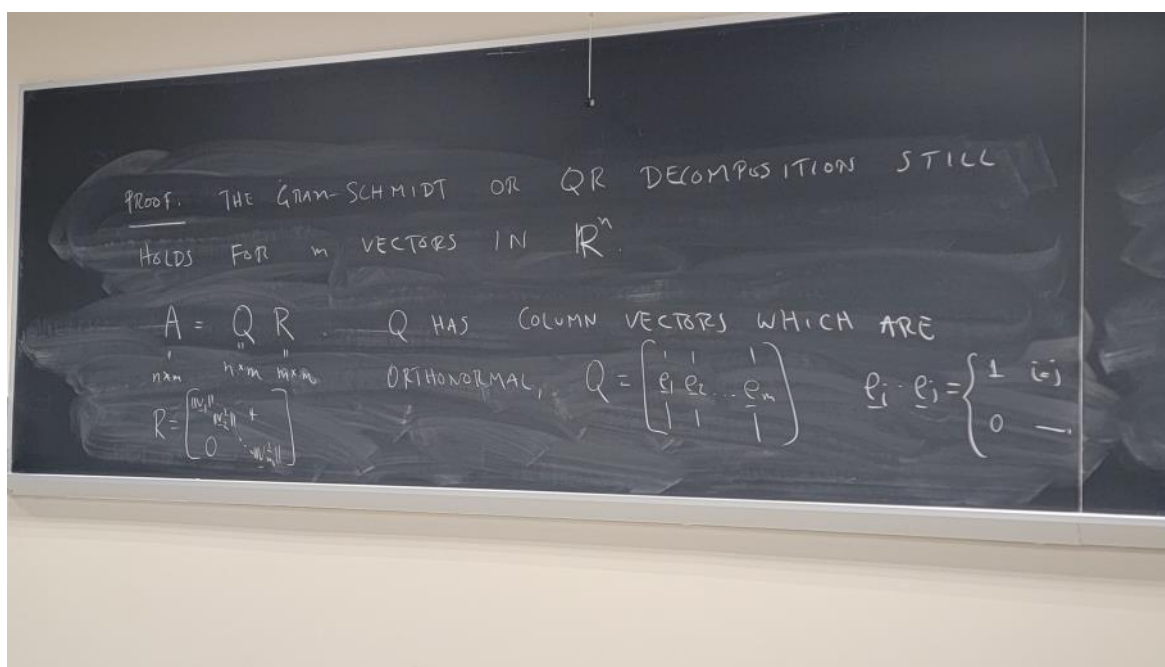 PROOF. THE GRAM-SCHMIDT OR QR DECOMPOSITION STILL
HOLDS FOR m VECTORS IN ℝⁿ.
A = Q R . Q HAS COLUMN VECTORS WHICH ARE
n×m n×m m×m ORTHONORMAL, Q = [e₁ e₂ ... eₘ] eᵢ · eⱼ = { 1 i=j
0 —
R = [‖v₁‖ ‖v₂^⊥‖ * ⋱ 0 ‖vₘ^⊥‖]